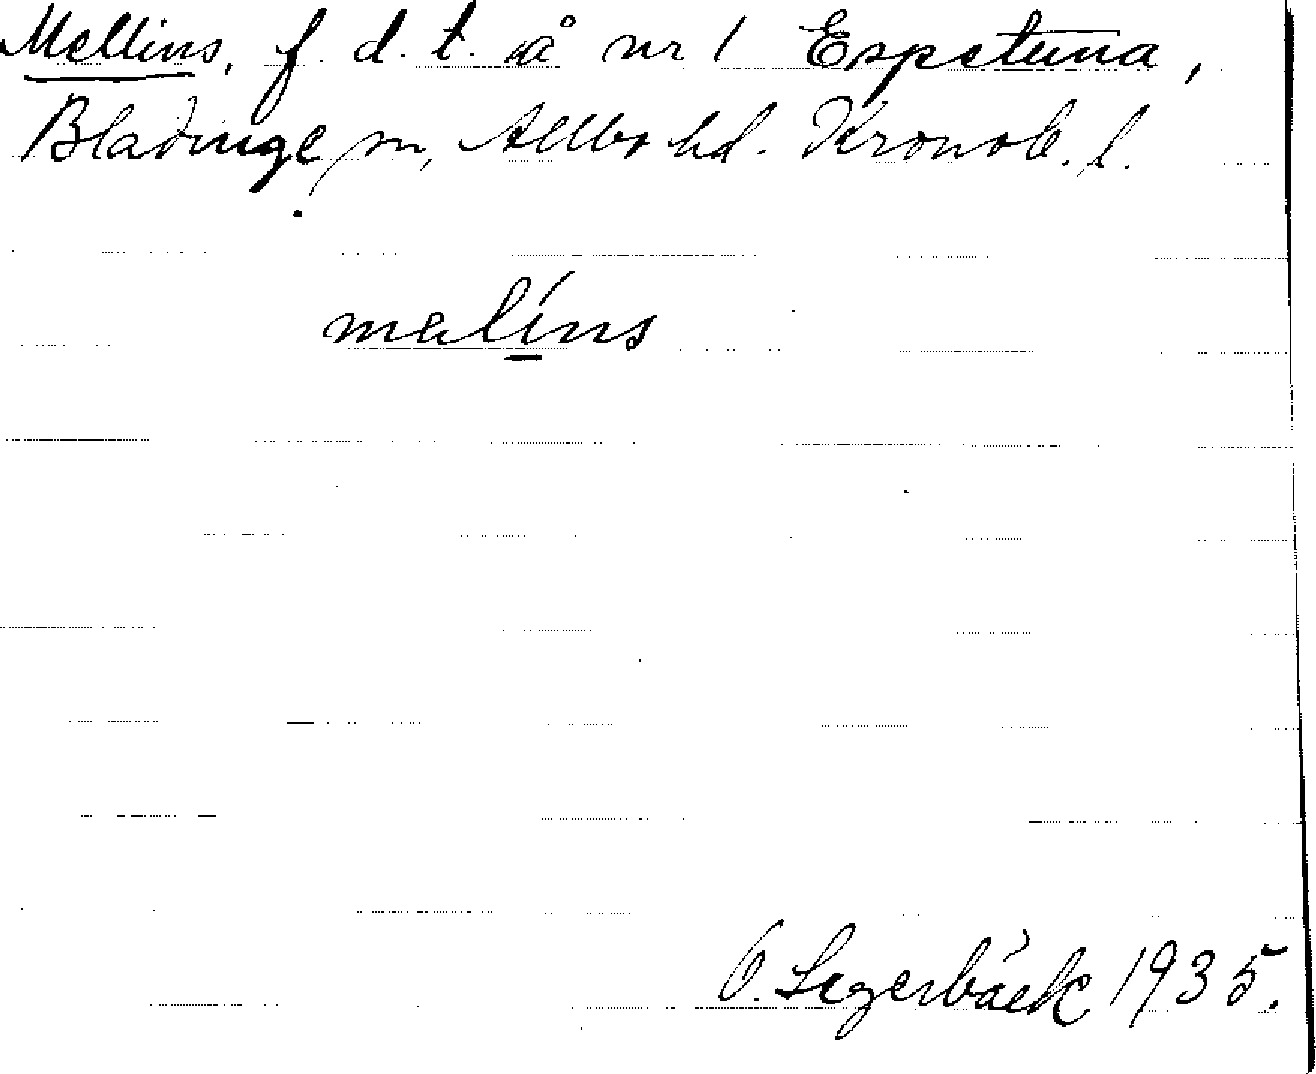 Mellins, f. d. t. å nr 1 Espetuna,
Blädinge sn, Allbo hd. Kronob. l.
mælins
O. Segerbäck 1935.